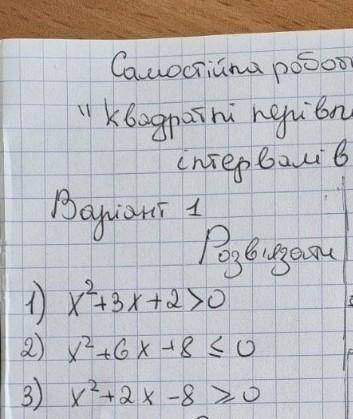 Самостійна робот
" квадратні нерівн
інтервалів
Варіант 1
Розв'язати
1) x²+3x+2>0
2) x²+6x+8 ≤ 0
3) x²+2x-8 ≥ 0